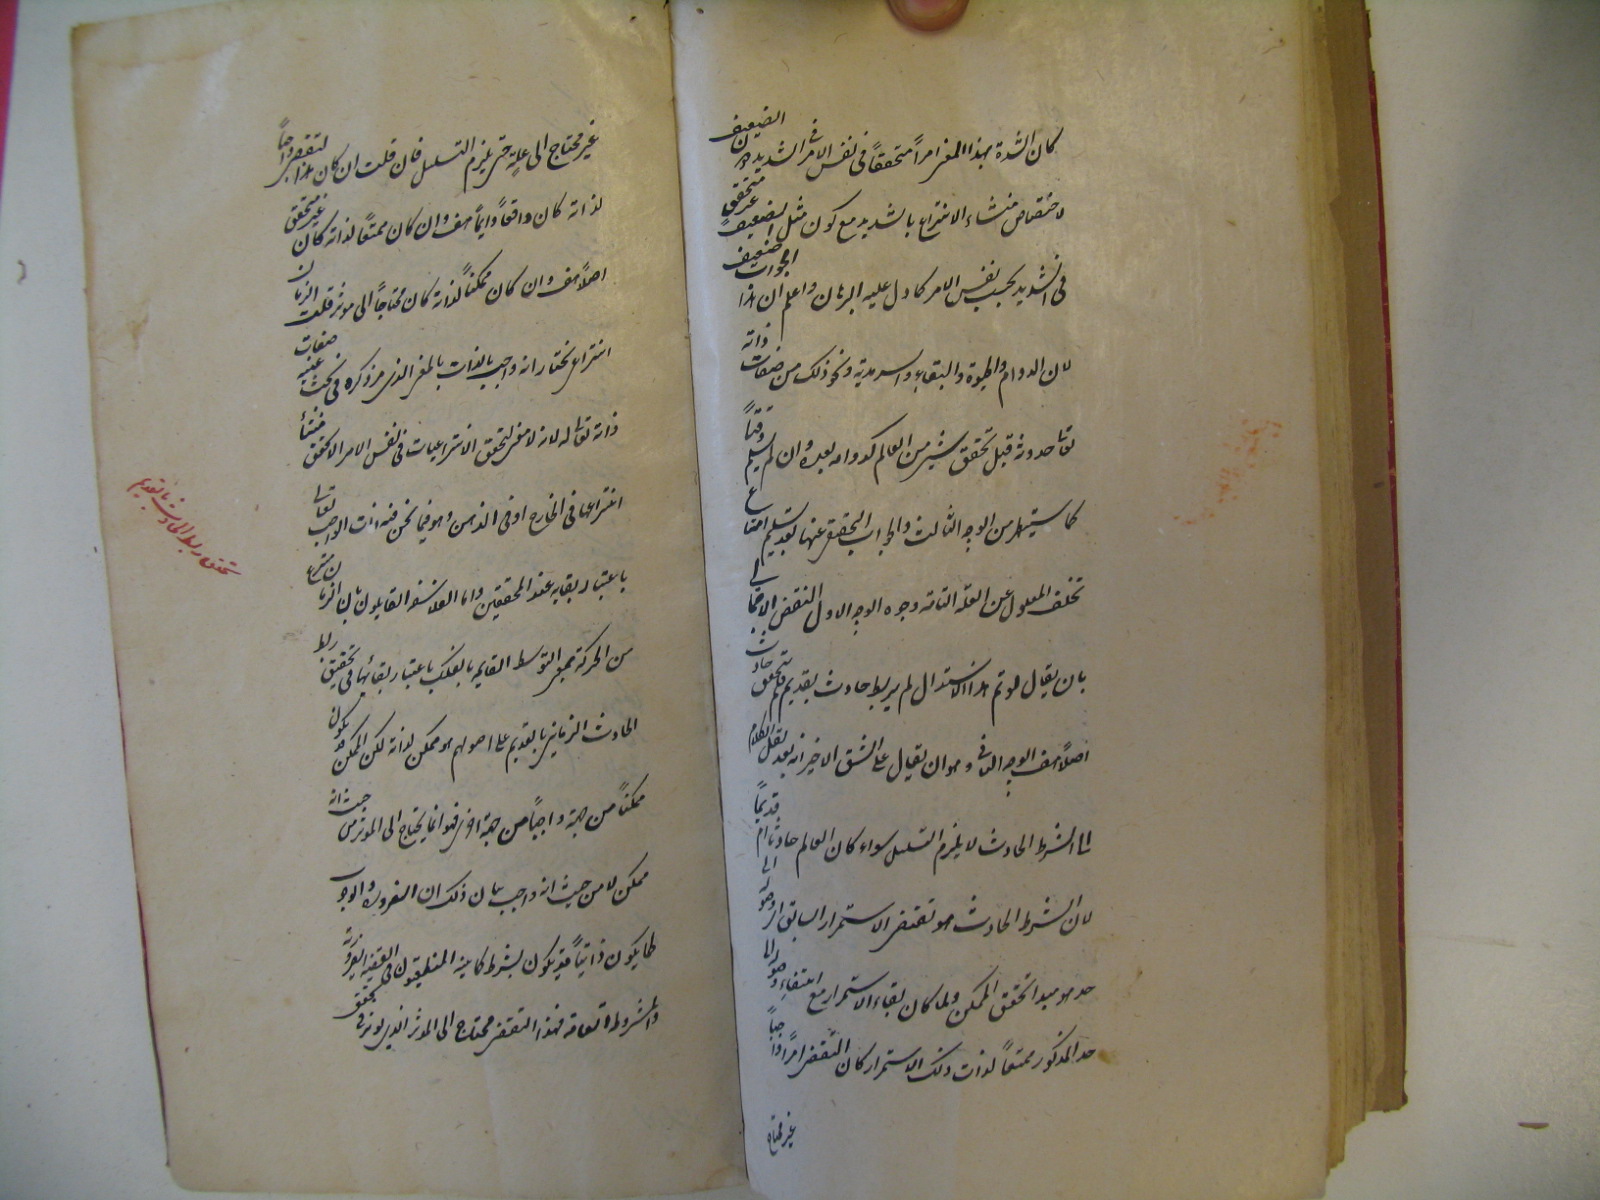 كان الشدة بهذا المعنى امراً متحققاً فى نفس الامر فى الشديد دون الضعيف
لاختصاص منشاء الانتزاع بالشديد مع كون مثل الضعيف غير متحقق
فى الشديد بحسب نفس الامر كما دل عليه البرهان واعلم ان هذا الجواب ضعيف
لان الدوام والحيوة والبقاء والسرمدية ونحو ذلك من صفات ذاته
تعا حدوثه قبل تحقق شىء من العالم كدوامه بعده وان لم يسلم
كما سيظهر من الوجه الثالث والجواب التحقيق عنها بعد تسليم امتناع
تخلف المعلول عن العلة التامة وجوه الوجه الاول النقض الاجمالى
بان يقال لو تم هذا الاستدلال لم يربط حادث بقديم فلم يتحقق حادث
اصلاً هف الوجه الثانى وهو ان يقال على الشق الاخير انه بعد نقل الكلام
الى الشرط الحادث لا يلزم التسلسل سواء كان العالم حادثا ام قديماً
لان الشرط الحادث هو تقتضى الاستمرار السابق او وصوله الى
حد هو مبدا تحقق الممكن ولما كان بقاء الاستمرار مع انتفاء وصوله الى
حد المذكور ممتنعاً لذات ذلك الاستمرار كان التقضى امراً واجباً
غير محتاج
غير محتاج الى علة حتى يلزم التسلسل فان قلت ان كان هذا التقضى واجباً
لذاته كان واقعاً دايماً هف وان كان ممتنعاً لذاته كان غير متحقق
اصلاً هف وان كان ممكناً لذاته كان محتاجاً الى موثر قلت الزمان
انتزاعى نختار انه واجب بالذات بالمعنى الذى مر ذكره فى بحث عينية صفات
ذاته تعالى له لانه لا معنى لتحقق الانتزاعيات فى نفس الامر الا تحقق منشأ
انتزاعها فى الخارج او فى الذهن وهو فيما نحن فيه ذات الواجب تعالى
باعتبار بقايه عند المحققين واما الفلاسفة القايلون بان الزمان منتزع
من الحركة بمعنى التوسط القايمة بالفلك باعتبار بقائها فى تحقيق ربط
الحادث الزمانى بالقديم على اصولهم هو ممكن لذاته لكن الممكن قد يكون
ممكناً من جهة واجباً من جهة اخرى فهو انما يحتاج الى الموثر من حيث انه
ممكن لا من حيث انه واجب بيان ذلك ان الضرورة والوجوب
كما يكون ذاتياً قد يكون بشرط كما بينه المنطقيون فى القضية الضرورية
والمشروطة العامة فهذا التقضى محتاج الى الموثر الذى يوثر فى تحقق
تحقيق ربط الحادث بالقديم